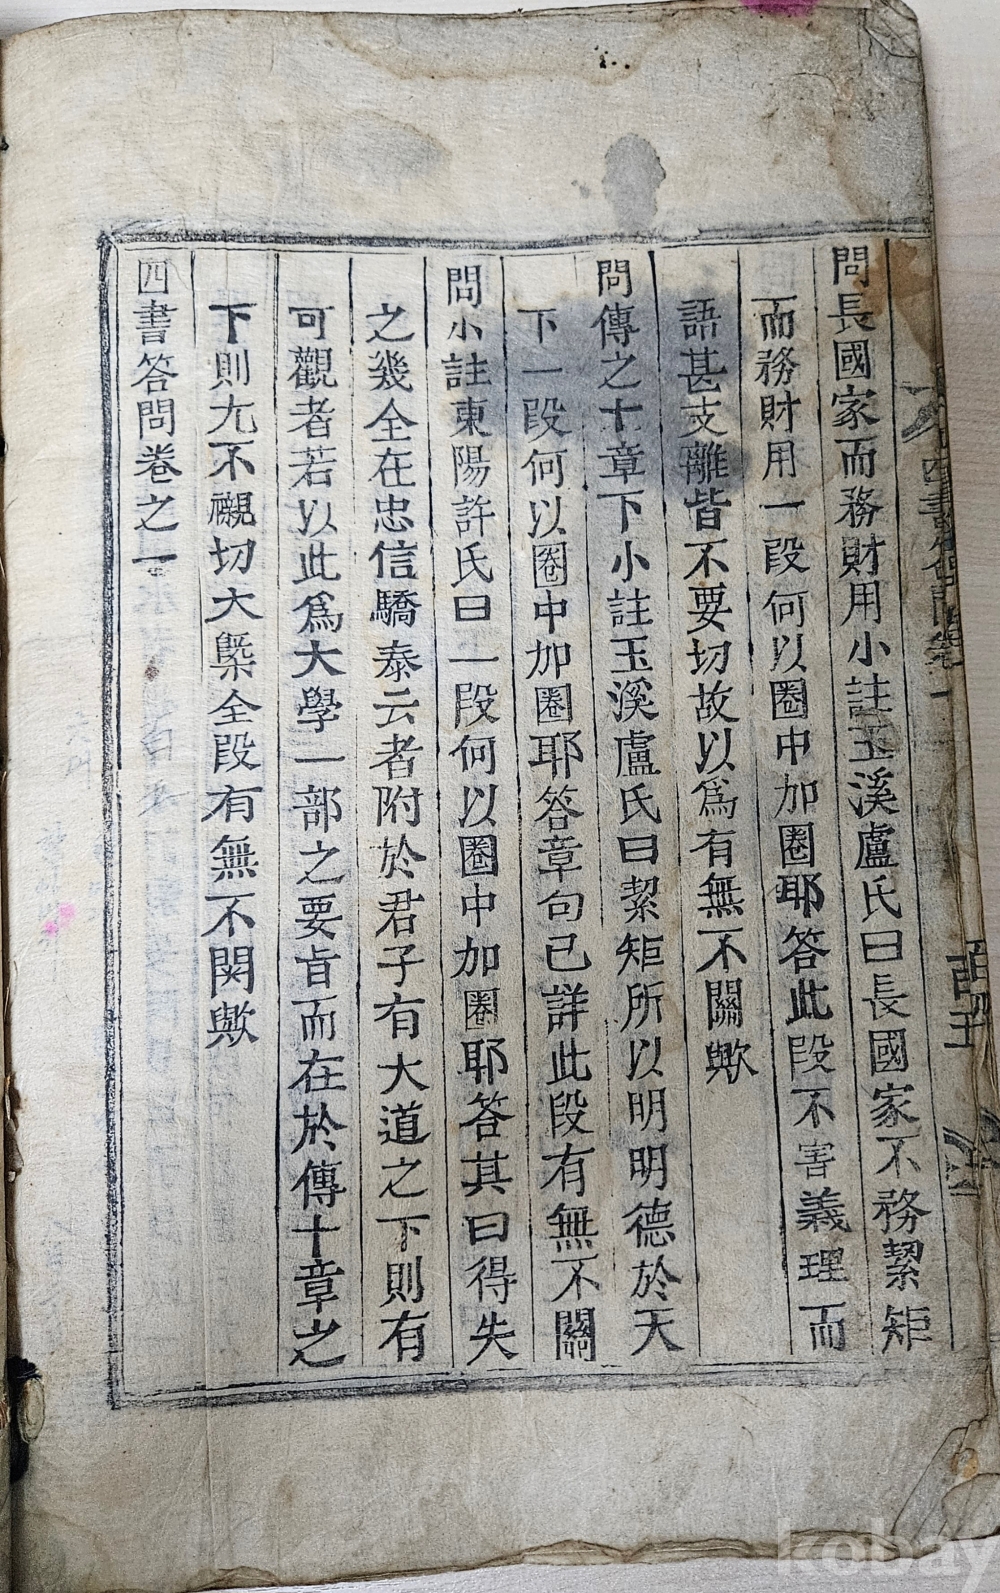 問長國家而務財用小註玉溪盧氏曰長國家不務絜矩
而務財用一段何以圈中加圈耶答此段不害義理而
語甚支離皆不要切故以爲有無不關歟
問傳之十章下小註玉溪盧氏曰絜矩所以明明德於天
下一段何以圈中加圈耶答章句已詳此段有無不關
問小註東陽許氏曰一段何以圈中加圈耶答其曰得失
之幾全在忠信驕泰云者附於君子有大道之下則有
可觀者若以此爲大學一部之要旨而在於傳十章之
下則尢不襯切大槩全段有無不関歟
四書答問卷之一
kobay